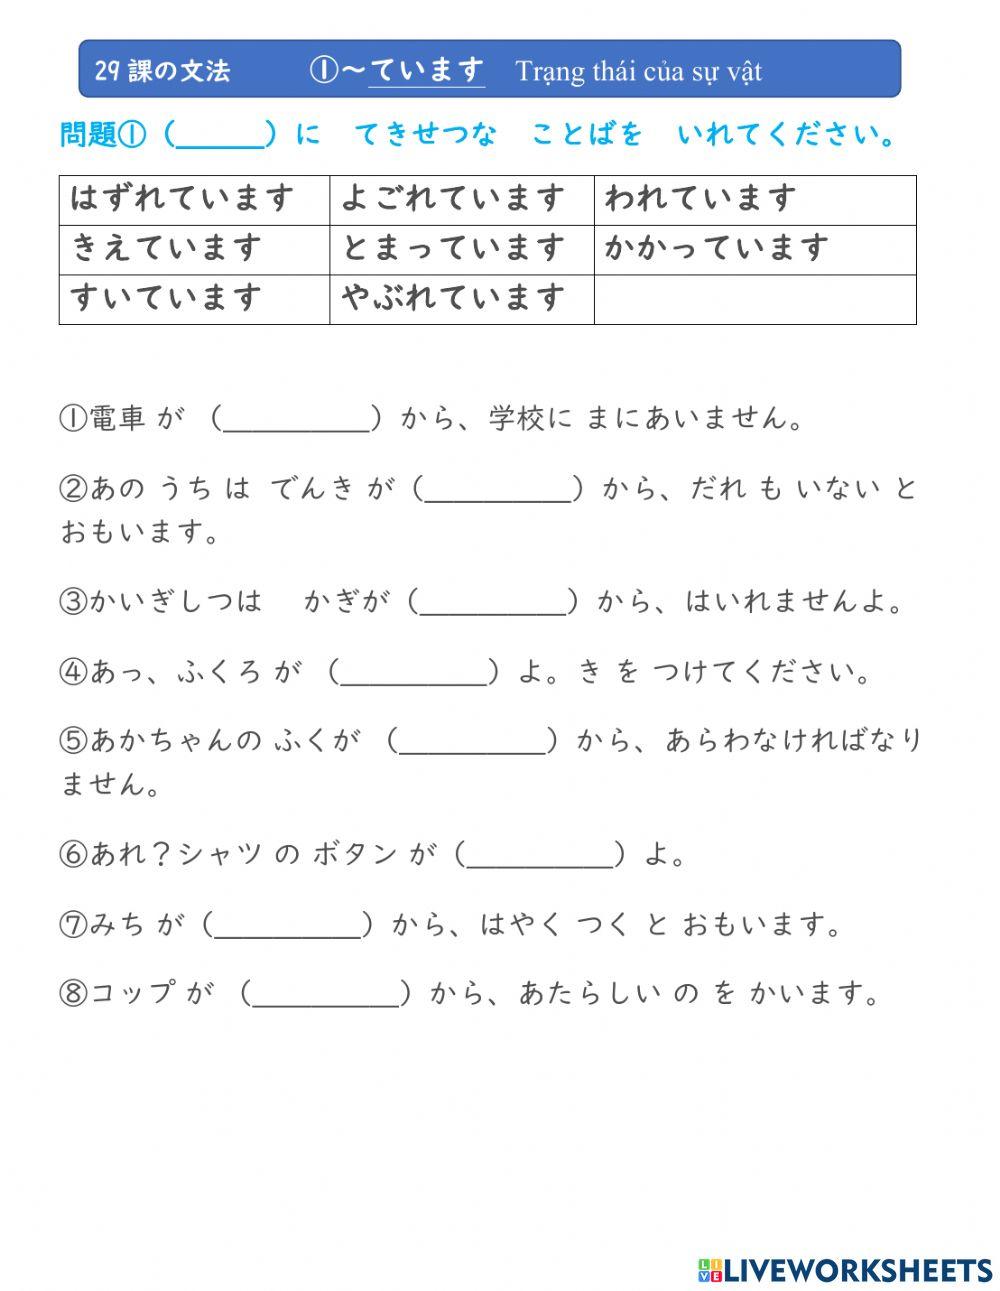 29 課の文法　①～ています　Trạng thái của sự vật
問題①（______）に　てきせつな　ことばを　いれてください。
はずれています　よごれています　われています
きえています　とまっています　かかっています
すいています　やぶれています
①電車 が （__________）から、学校に まにあいません。
②あの うち は でんき が（__________）から、だれ も いない と
おもいます。
③かいぎしつは　かぎが（__________）から、はいれませんよ。
④あっ、ふくろ が （__________）よ。き を つけてください。
⑤あかちゃんの ふくが （__________）から、あらわなければなり
ません。
⑥あれ？シャツ の ボタン が（__________）よ。
⑦みち が（__________）から、はやく つく と おもいます。
⑧コップ が （__________）から、あたらしい の を かいます。
LIVE LIVEWORKSHEETS